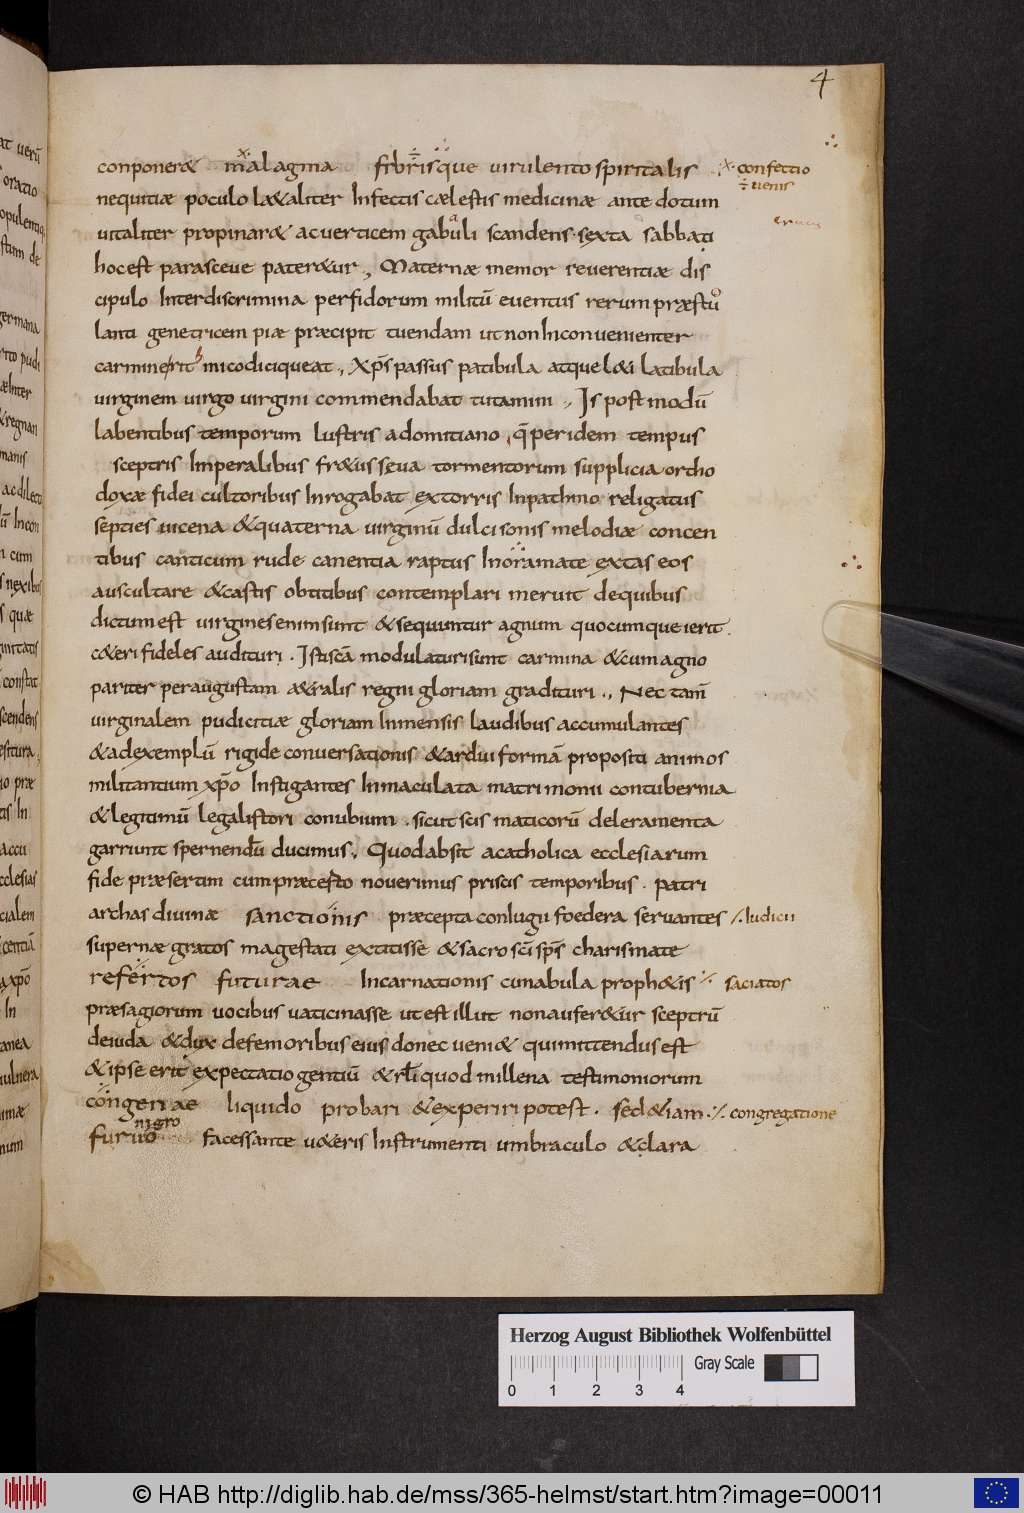 4
conponerӕ malagma fibrisque virulento spiritalis confectio
nequitiæ poculo laetaliter Infectis cælestis medicinæ antedotum uenis
uitaliter propinaret ac uerticem gabuli scandens sexta sabbati
hoc est parasceue pateretur, Maternæ memor reuerentiæ dis
cipulo Inter discrimina perfidorum militū euentus rerum præstu
lanti genetricem piæ præcipit tuendam ut non Inconuenienter
carmine rithmico dici queat, Xp̄s passus patibula atque leti latibula
uirginem uirgo uirgini commendabat tutamini, Is post modū
labentibus temporum lustris a domitiano q̄ per idem tempus
sceptris Imperalibus fretus seua tormentorum supplicia ortho
doxæ fidei cultoribus Inrogabat extorris Inpathmo religatus
septies uicena & quaterna uirginū dulcisonis melodiæ concen
tibus canticum rude canentia raptus Inoramate extaseos
auscultare & castis obtitibus contemplari meruit de quibus
dictum est uirgines enim sunt & sequuntur agnum quocumque ierit.
ceteri fideles audituri. Istiscā modulaturi sunt carmina & cum agno
pariter per augustam aetralis regni gloriam gradituri., Nec tam̄
uirginalem pudicitiæ gloriam Inmensis laudibus accumulantes
& ad exemplū rigide conuersationis & ardui formā propositi animos
militantium xp̄o Instigantes Inmaculata matrimonii contubernia
& legitimū legalis tori conubium. sicut scismaticorū deleramenta
garriunt spernendū ducimus, Quod absit a catholica ecclesiarum
fide præsertim cum præcesto nouerimus priscis temporibus. patri
archas diuinæ sanctionis præcepta coniugii foedera seruantes Iudicii
supernæ gratos magestati extitisse & sacro sc̄i sp̄s charismate
refertos futurae Incarnationis cunabula prophetis saciatos
præsagiorum uocibus uaticinasse ut est illut non auferetur sceptrū
de iuda & dux de femoribus eius donec ueniet qui mittendus est
& ipse erit expectatio gentiū & rl̄ quod millena testimoniorum
congeriae liquido probari & experiri potest. sed & iam congregatione
nigro
furuo facessante ueteris Instrumenti umbraculo & clara
Herzog August Bibliothek Wolfenbüttel
Gray Scale
0 1 2 3 4
© HAB http://diglib.hab.de/mss/365-helmst/start.htm?image=00011